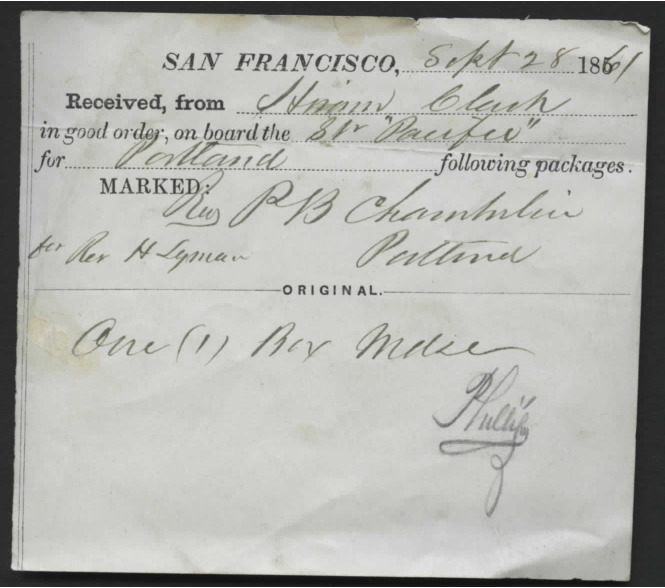 SAN FRANCISCO, Sept 28 1861
Received, from Hiram Clark
in good order, on board the Str "Pacific"
for Portland following packages.
MARKED:
Rev P B Chamberlin
for Rev H Lyman Portland
ORIGINAL.
One (1) Box Mdse
Phillips